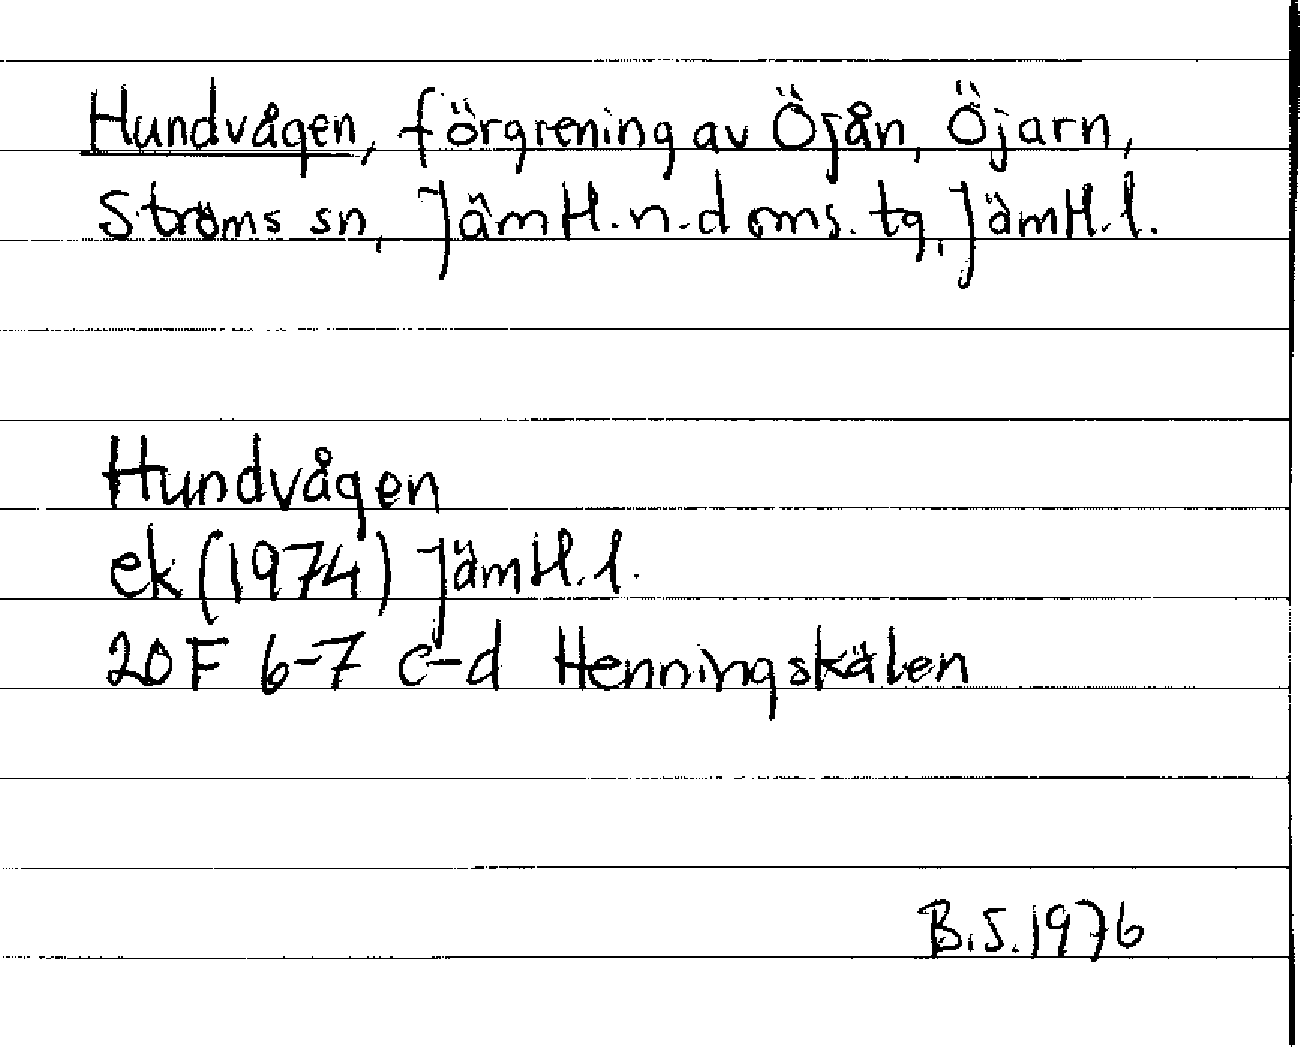 Hundvågen, förgrening av Öjån, Öjarn,
Ströms sn, Jämtl.n.doms.tg, Jämtl.l.
Hundvågen
ek (1974) Jämtl.l.
20 F 6-7 c-d Henningskälen
B.S.1976